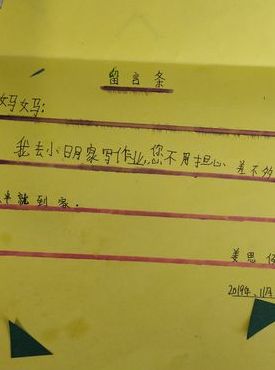 留言条
妈妈：
我去小明家写作业,您不用担心。差不多
就到家.
姜思
2019年、11月